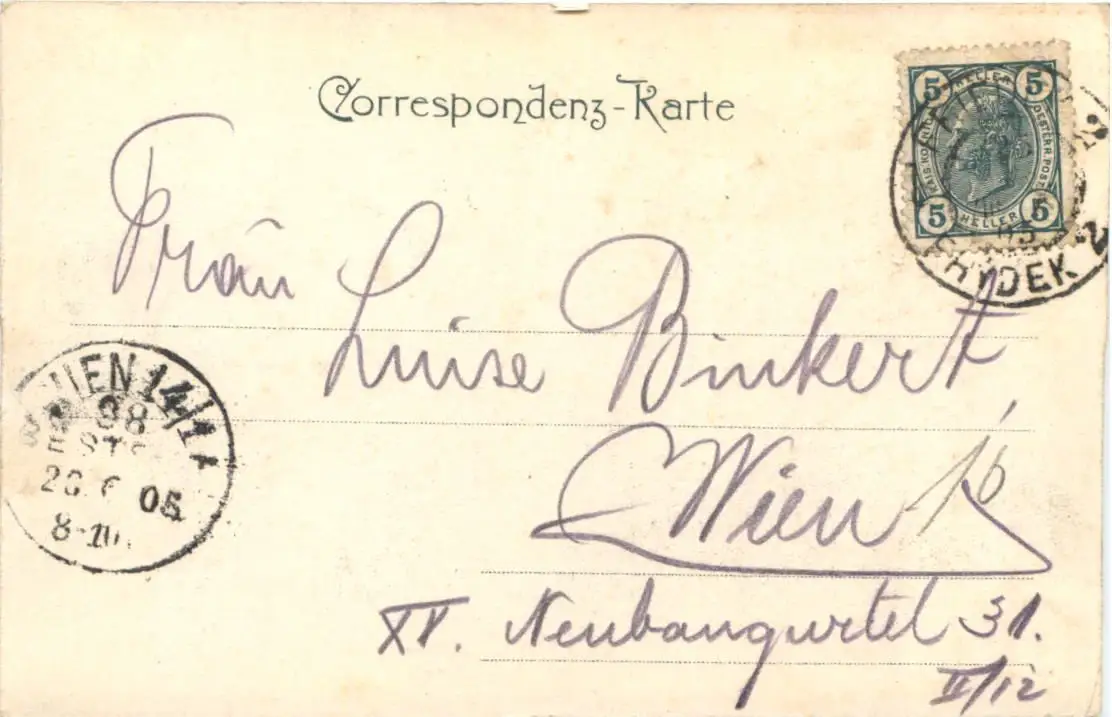 Correspondenz-Karte
5 HELLER 5
KAIS. KÖNIGL. OESTERR. POST
5 HELLER 5
05
FRYDEK 2
Fräun
Luise Binkert,
Wien 16
XV. Neubaugürtel 31.
II/12
WIEN 14/1
88
BEST
26. 6 05
8-10